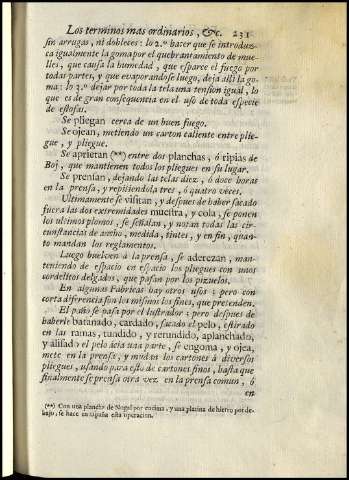 Los terminos más ordinarios, &c. 231
sin arrugas, ni dobleces: lo 2.º hacer que se introduz-
ca igualmente la goma por el quebrantamiento de mue-
lles, que causa la humedad, que esparce el fuego por
todas partes, y que evaporandose luego, deja alli la go-
ma: lo 3.º dejar por toda la tela una tension igual, lo
que es de gran consequencia en el uso de toda especie
de estofas.
Se pliegan cerca de un buen fuego.
Se ojean, metiendo un carton caliente entre plie-
gue, y pliegue.
Se aprietan (**) entre dos planchas, ó ripias de
Boj, que mantienen todos los pliegues en su lugar.
Se prensan, dejando las telas diez, ó doce horas
en la prensa, y repitiendola tres, ó quatro veces.
Ultimamente se visitan, y despues de haber sacado
fuera las dos extremidades muestra, y cola, se ponen
los ultimos plomos, se señalan, y notan todas las cir-
cunstancias de ancho, medida, tintes, y en fin, quan-
to mandan los reglamentos.
Luego buelven á la prensa, se aderezan, man-
teniendo de espacio en espacio los pliegues con unos
cordelitos delgados, que pasan por los pizuelos.
En algunas Fabricas hay otros usos; pero con
corta diferencia son los mismos los fines, que pretenden.
El paño se pasa por el lustrador; pero despues de
haberle batanado, cardado, sacado el pelo, estirado
en las ramas, tundido, y retundido, aplanchado,
y alisado el pelo ácia una parte, se engoma, y ojea,
mete en la prensa, y mudan los cartones á diversos
pliegues, usando para esto de cartones finos, hasta que
finalmente se prensa otra vez en la prensa comun, ó
en
(**) Con una plancha de Nogal por encima, y una platina de hierro por de-
bajo, se hace en España esta operacion.